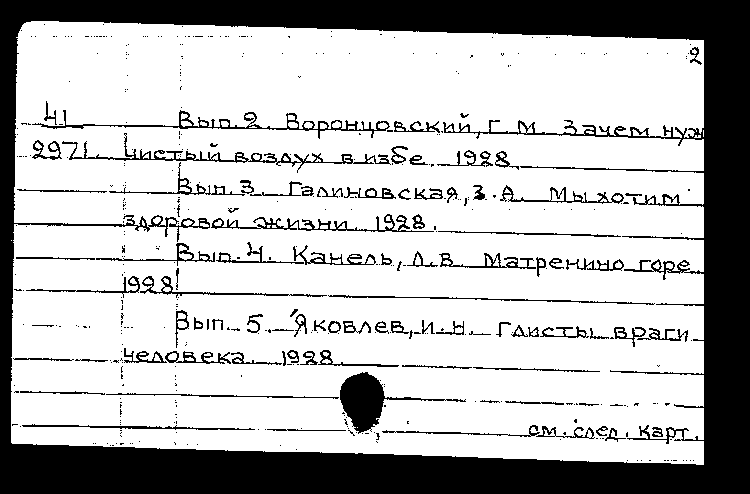 2
41 Вып. 2. Воронцовский, Г. М. Зачем нуж
2971. чистый воздух в избе 1928
Вып. 3. Галиновская, З. А. Мы хотим
здоровой жизни 1928.
Вып. 4. Канель, Л. В Матренино горе
1928
Вып. 5. Яковлев, И. Н. Глисты враги
человека. 1928.
см. след. карт.